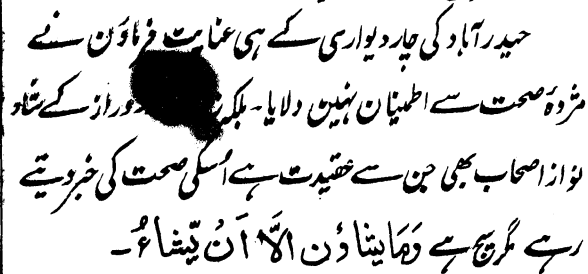 حیدرآباد کی چار دیواری کے ہی عنایت فرماؤن نے
مژدۂ صحت سے اطمینان نہین دلایا۔ بلکہ دوردراز کے شاد
نواز اصحاب بھی جن سے عقیدت ہے اُسکی صحت کی خبر دیتے
رہے مگر سچ ہے وَمَا یشاؤن الَّا اَنْ یَّشاءُ۔